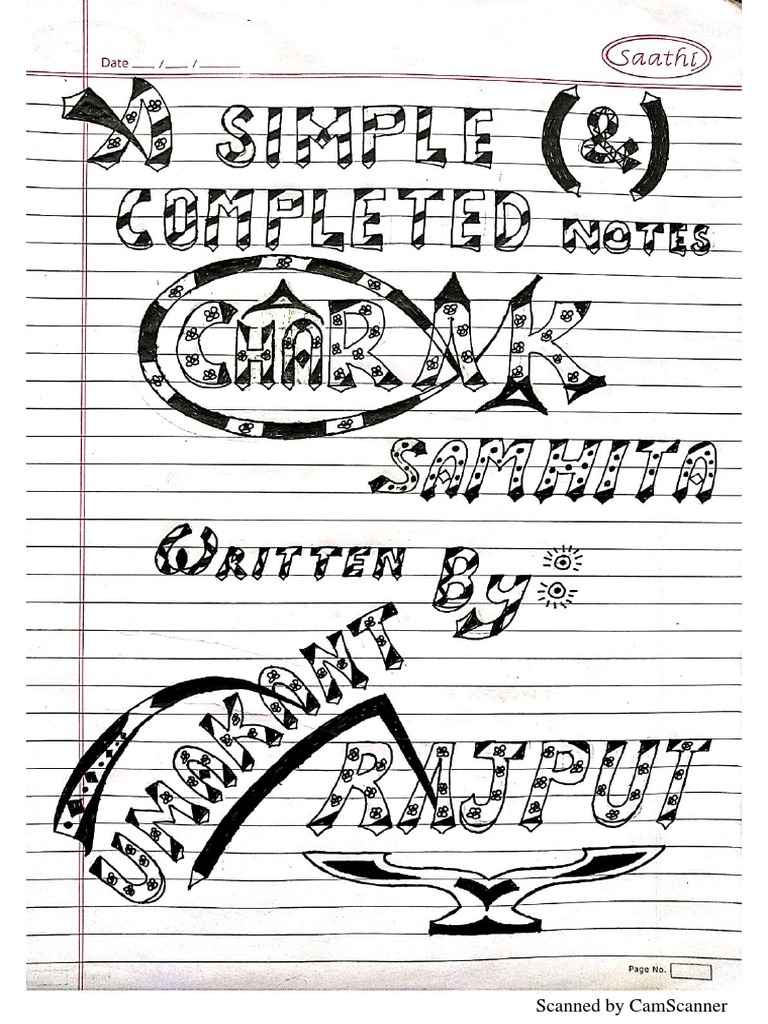 Date __/__/____
Saathi
A SIMPLE (&)
COMPLETED NOTES
CHARAK
SAMHITA
WRITTEN By
UMAKANT
RAJPUT
Page No.
Scanned by CamScanner